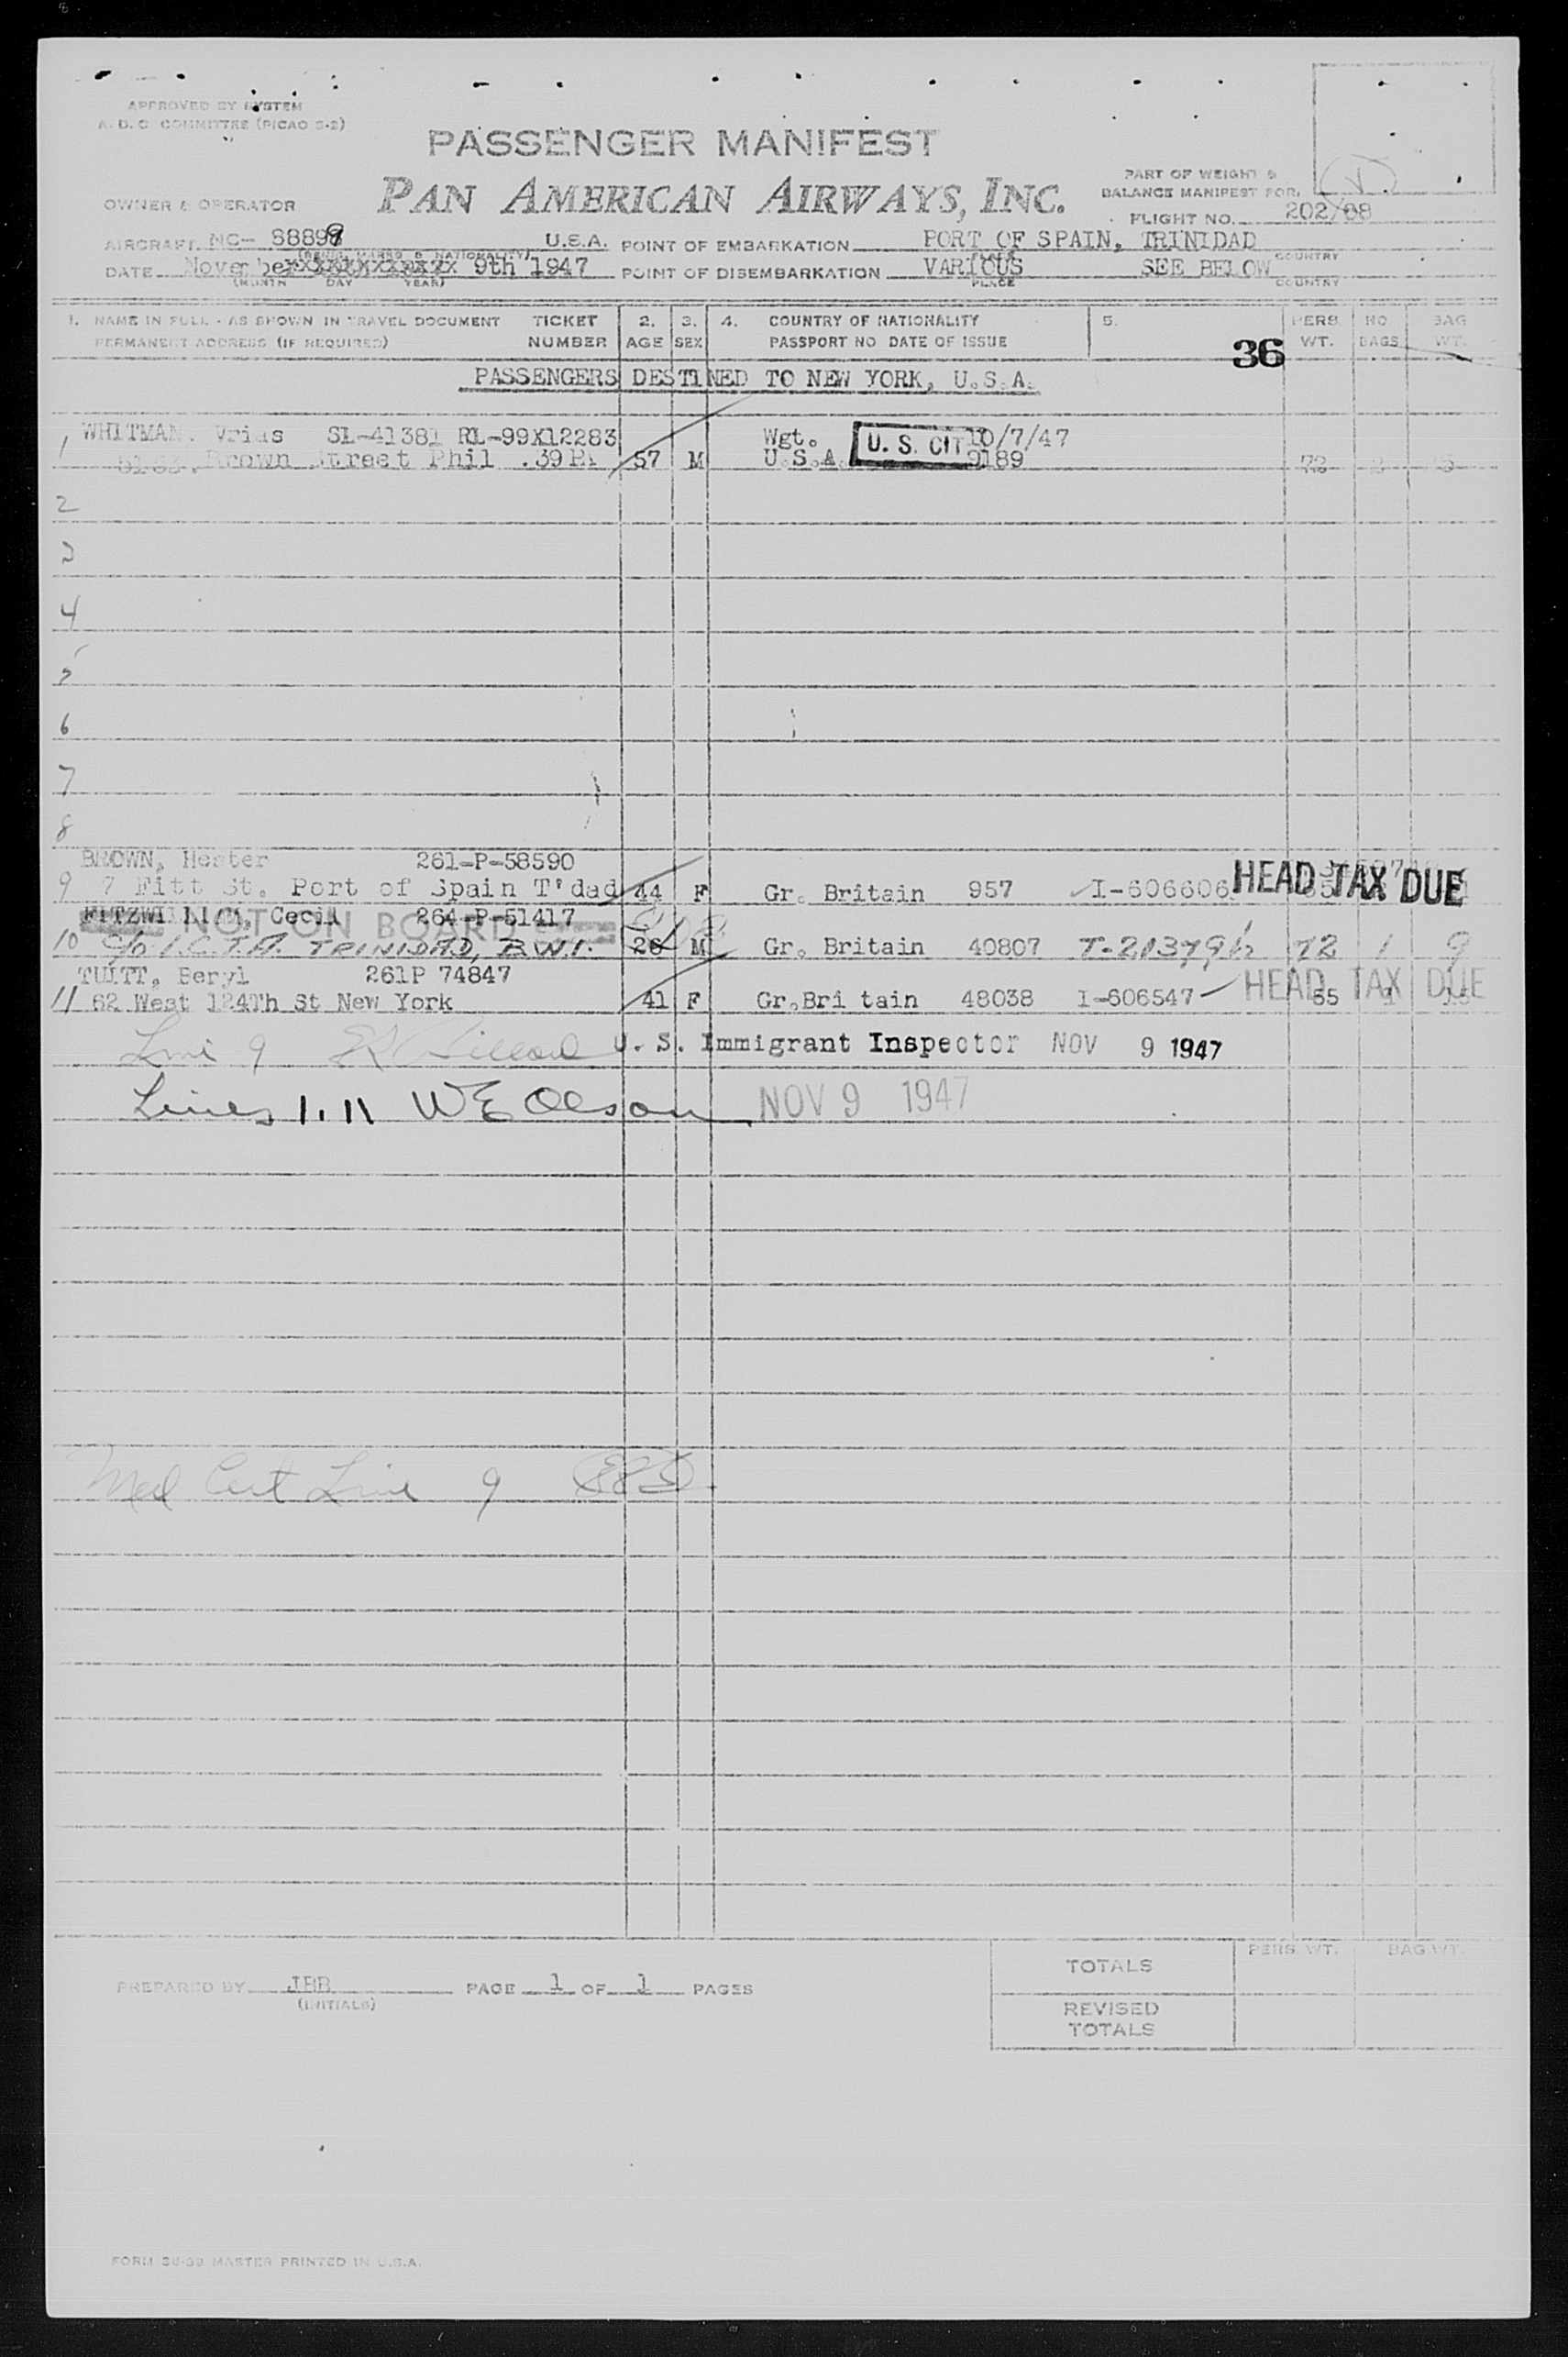 APPROVED BY SYSTEM
A. D. C. COMMITTEE (PICAO S-2)
PASSENGER MANIFEST
PAN AMERICAN AIRWAYS, INC.
PART OF WEIGHT &
BALANCE MANIFEST FOR
OWNER & OPERATOR
FLIGHT NO. 202/88
AIRCRAFT NC- 8889 U.S.A. POINT OF EMBARKATION PORT OF SPAIN, TRINIDAD
PLACE COUNTRY
DATE November 9th 1947 POINT OF DISEMBARKATION VARIOUS SEE BELOW
(MONTH DAY YEAR) PLACE COUNTRY
1. NAME IN FULL - AS SHOWN IN TRAVEL DOCUMENT TICKET 2. 3. 4. COUNTRY OF NATIONALITY 5. PERS. NO. BAG
PERMANENT ADDRESS (IF REQUIRED) NUMBER AGE SEX PASSPORT NO DATE OF ISSUE WT. BAGS WT.
36
PASSENGERS DESTINED TO NEW YORK, U.S.A.
WHITMAN, SL-41381 RL-99X12283 Wgt. 10/7/47
1 Brown Street Phil .39 PA 57 M U.S.A. U. S. CIT 9189
2
3
4
5
6
7
8
BROWN, Hester 261-P-58590
9 7 Fitt St. Port of Spain T'dad 44 F Gr. Britain 957 I-606606 HEAD TAX DUE
Cecil 264-P-51417
NOT ON BOARD
10 c/o I.C.T.A. TRINIDAD, B.W.I. 26 M Gr. Britain 40807 72 1 9
TUITT, Beryl 261P 74847
11 62 West 124Th St New York 41 F Gr.Bri tain 48038 I-606547 55 HEAD TAX DUE
Line 9 U. S. Immigrant Inspector NOV 9 1947
Lines 1. 11 WE Olson NOV 9 1947
Med Cert Line 9
TOTALS PERS. WT. BAG WT.
PREPARED BY JBB PAGE 1 OF 1 PAGES
(INITIALS)
REVISED
TOTALS
MASTER PRINTED IN U.S.A.